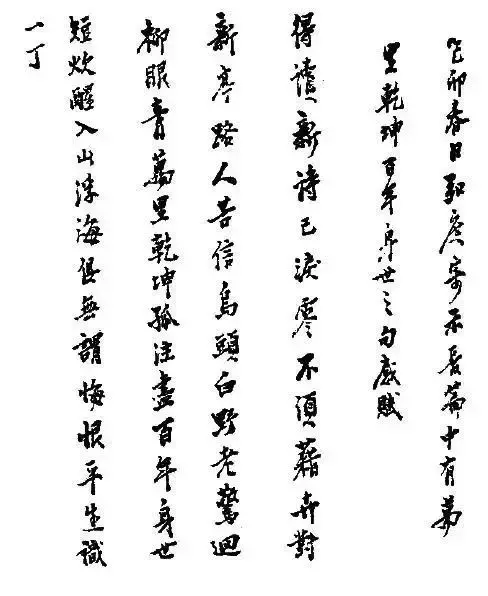 己卯春日弘度寄示長篇中有萬
里乾坤百年身世之句感賦
得讀新詩已淚零不須藉卉對
新亭路人苦信烏頭白野老驚迴
柳眼青萬里乾坤孤注盡百年身世
短炊醒入山浮海俱無謂悔恨平生識
一丁